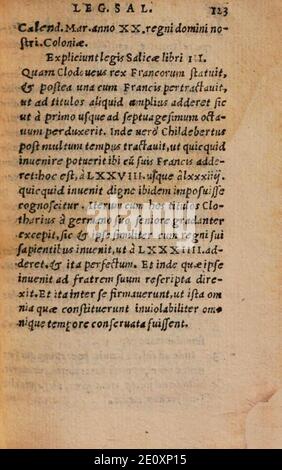 LEG. SAL. 123
Calend. Mar. anno XX. regni domini no-
stri. Coloniæ.
Expliciunt legis Salicæ libri III.
Quam Clodoueus rex Francorum statuit,
& postea una cum Francis pertractauit,
ut ad titulos aliquid amplius adderet sic
ut à primo usque ad septuagesimum octa-
uum perduxerit. Inde uerò Childebertus
post multum tempus tractauit, ut quicquid
inuenire potuerit ibi cū suis Francis adde-
ret: hoc est, à LXXVIII. usque
quicquid inuenit digne ibidem imposuisse
cognoscitur. Iterum cum hos titulos Clo-
tharius à germano suo seniore gradanter
excepit, sic & ipse similiter cum regni sui
sapientibus inuenit, ut à LXXXIIII. ad-
deret, & ita perfectum. Et inde quæ ipse
inuenit ad fratrem suum rescripta dire-
xit. Et ita inter se firmauerunt, ut ista om
nia quæ constituerunt inuiolabiliter om-
nique tempore conseruata fuissent.
alamy
Image ID: 2E0XP15
www.alamy.com